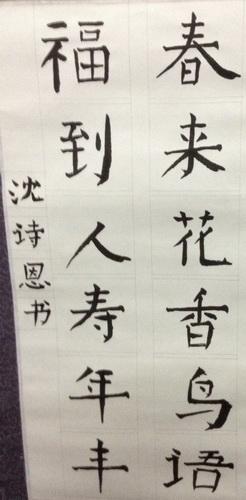 春来花香鸟语
福到人寿年丰
沈诗恩书